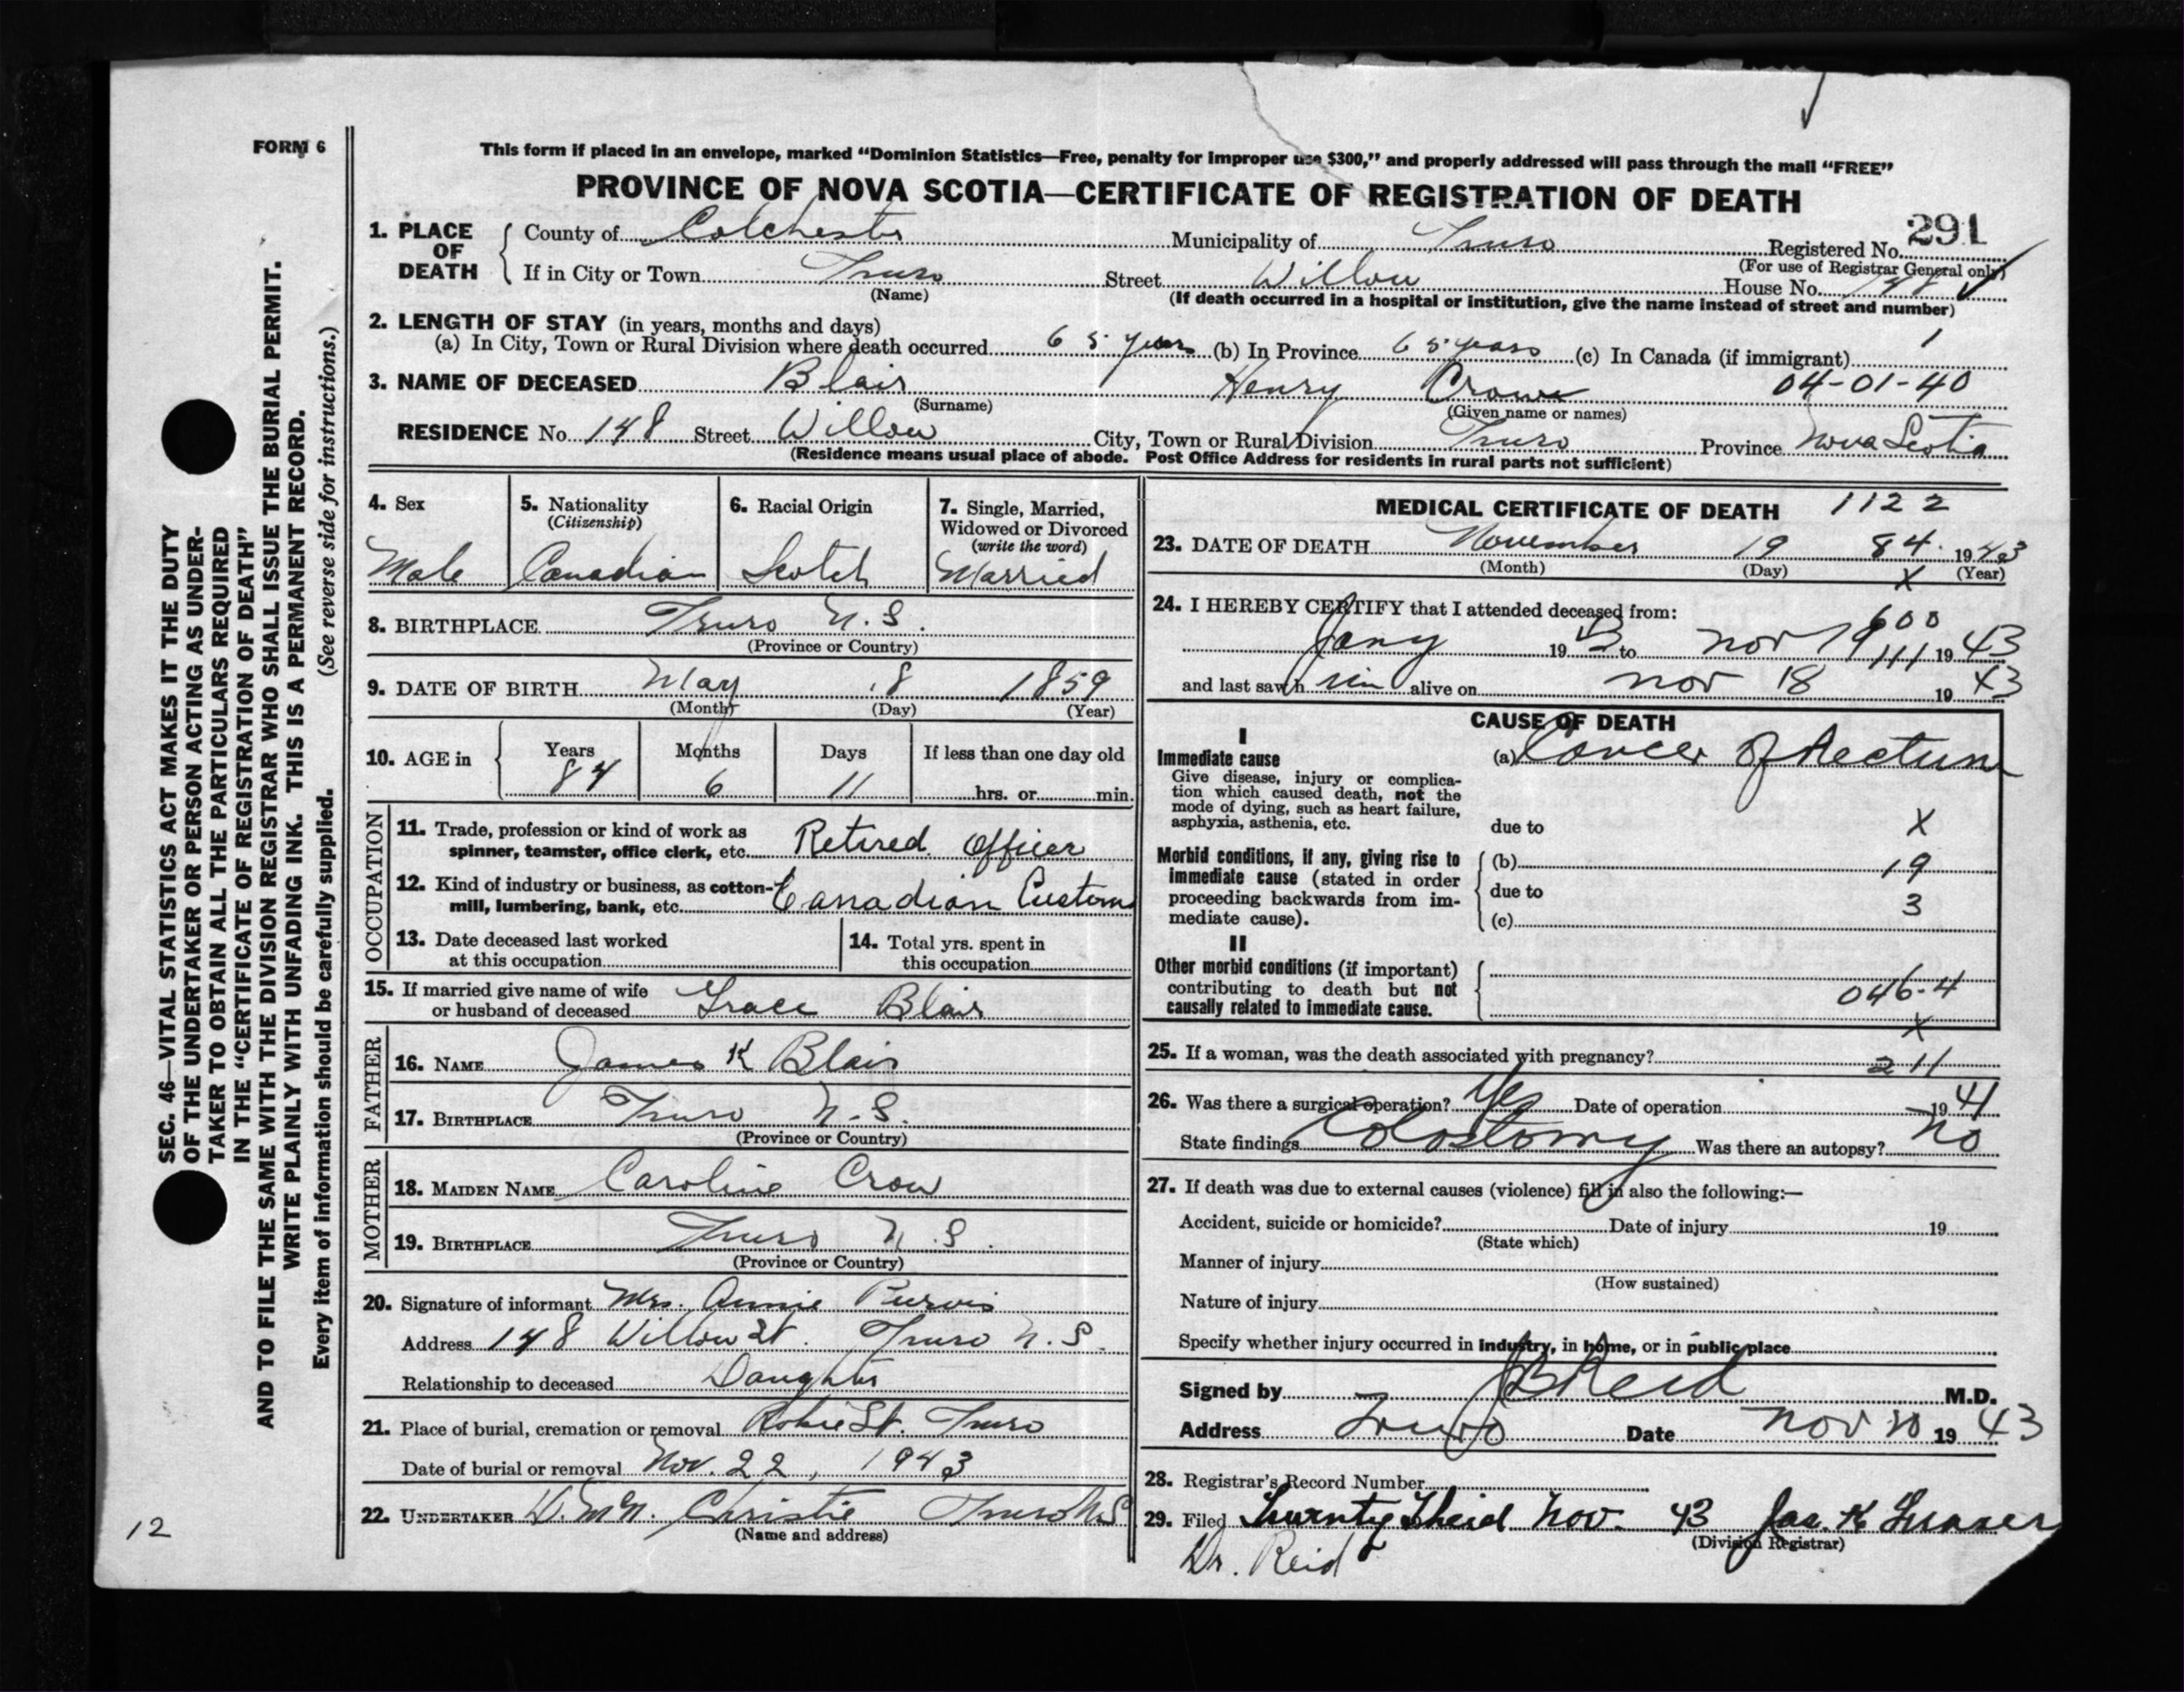 FORM 6
This form if placed in an envelope, marked “Dominion Statistics—Free, penalty for improper use $300,” and properly addressed will pass through the mail “FREE”
PROVINCE OF NOVA SCOTIA—CERTIFICATE OF REGISTRATION OF DEATH
291
1. PLACE OF DEATH { County of Colchester Municipality of Truro Registered No.
(For use of Registrar General only)
If in City or Town Truro Street Willow House No. 148
(Name) (If death occurred in a hospital or institution, give the name instead of street and number)
2. LENGTH OF STAY (in years, months and days)
(a) In City, Town or Rural Division where death occurred 65 years (b) In Province 65 years (c) In Canada (if immigrant) 1
3. NAME OF DECEASED Blair Henry Crowe 04-01-40
(Surname) (Given name or names)
RESIDENCE No. 148 Street Willow City, Town or Rural Division Truro Province Nova Scotia
(Residence means usual place of abode. Post Office Address for residents in rural parts not sufficient)
4. Sex 5. Nationality (Citizenship) 6. Racial Origin 7. Single, Married, Widowed or Divorced (write the word)
Male Canadian Scotch Married
8. BIRTHPLACE Truro N.S.
(Province or Country)
9. DATE OF BIRTH May 8 1859
(Month) (Day) (Year)
10. AGE in { Years Months Days If less than one day old
84 6 11 hrs. or min.
OCCUPATION
11. Trade, profession or kind of work as
spinner, teamster, office clerk, etc. Retired Officer
12. Kind of industry or business, as cotton-
mill, lumbering, bank, etc. Canadian Customs
13. Date deceased last worked
at this occupation
14. Total yrs. spent in
this occupation
15. If married give name of wife
or husband of deceased Grace Blair
FATHER
16. NAME James K Blair
17. BIRTHPLACE Truro N.S.
(Province or Country)
MOTHER
18. MAIDEN NAME Caroline Crow
19. BIRTHPLACE Truro N.S.
(Province or Country)
20. Signature of informant Mrs. Annie Purvis
Address 148 Willow St. Truro N.S.
Relationship to deceased Daughter
21. Place of burial, cremation or removal Robie St. Truro
Date of burial or removal Nov. 22, 1943
22. UNDERTAKER D. McN. Christie Truro N S
(Name and address)
MEDICAL CERTIFICATE OF DEATH 1122
23. DATE OF DEATH November 19 84 1943
(Month) (Day) X (Year)
24. I HEREBY CERTIFY that I attended deceased from:
600
Jany 1943 to Nov 19 111 1943
and last saw him alive on Nov 18 1943
CAUSE OF DEATH
I
Immediate cause (a) Cancer of Rectum
Give disease, injury or complica-
tion which caused death, not the
mode of dying, such as heart failure,
asphyxia, asthenia, etc. due to X
Morbid conditions, if any, giving rise to (b) 19
immediate cause (stated in order due to
proceeding backwards from im- 3
mediate cause). (c)
II
Other morbid conditions (if important)
contributing to death but not 046-4
causally related to immediate cause.
X
25. If a woman, was the death associated with pregnancy? 211
26. Was there a surgical operation? Yes Date of operation 1941
State findings Colostomy Was there an autopsy? No
27. If death was due to external causes (violence) fill in also the following:—
Accident, suicide or homicide? Date of injury 19
(State which)
Manner of injury
(How sustained)
Nature of injury
Specify whether injury occurred in industry, in home, or in public place
Signed by J B Reid M.D.
Address Truro Date Nov 20 1943
28. Registrar's Record Number
29. Filed Twenty Third Nov. 43 Jas. K
(Division Registrar)
Dr. Reid
12
SEC. 46—VITAL STATISTICS ACT MAKES IT THE DUTY
OF THE UNDERTAKER OR PERSON ACTING AS UNDER-
TAKER TO OBTAIN ALL THE PARTICULARS REQUIRED
IN THE “CERTIFICATE OF REGISTRATION OF DEATH”
AND TO FILE THE SAME WITH THE DIVISION REGISTRAR WHO SHALL ISSUE THE BURIAL PERMIT.
WRITE PLAINLY WITH UNFADING INK. THIS IS A PERMANENT RECORD.
Every item of information should be carefully supplied. (See reverse side for instructions.)